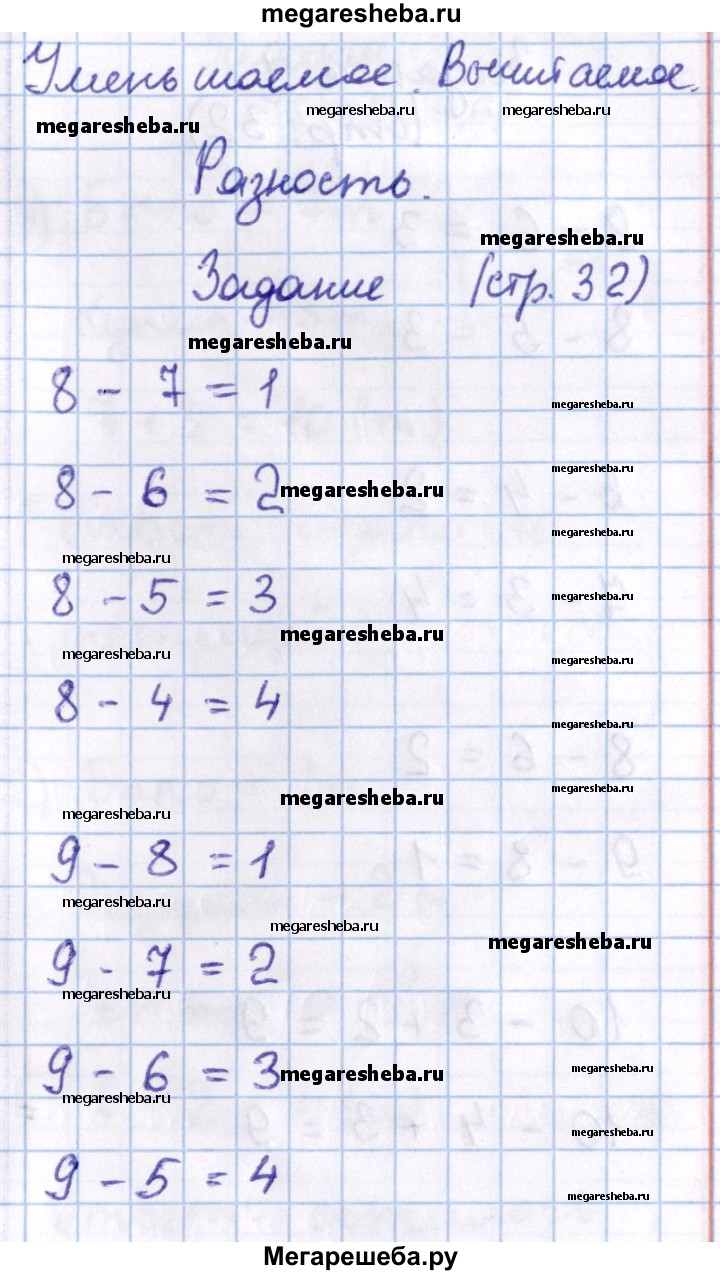 megaresheba.ru
Уменьшаемое. Вычитаемое.
megaresheba.ru megaresheba.ru
megaresheba.ru
Разность.
megaresheba.ru
Задание (стр. 32)
megaresheba.ru
8 - 7 = 1 megaresheba.ru
megaresheba.ru
8 - 6 = 2 megaresheba.ru
megaresheba.ru
megaresheba.ru
8 - 5 = 3 megaresheba.ru
megaresheba.ru
megaresheba.ru megaresheba.ru
8 - 4 = 4 megaresheba.ru
megaresheba.ru
megaresheba.ru
megaresheba.ru
9 - 8 = 1
megaresheba.ru
megaresheba.ru
megaresheba.ru
9 - 7 = 2
megaresheba.ru
9 - 6 = 3 megaresheba.ru megaresheba.ru
megaresheba.ru
megaresheba.ru
9 - 5 = 4 megaresheba.ru
Мегарешеба.ру